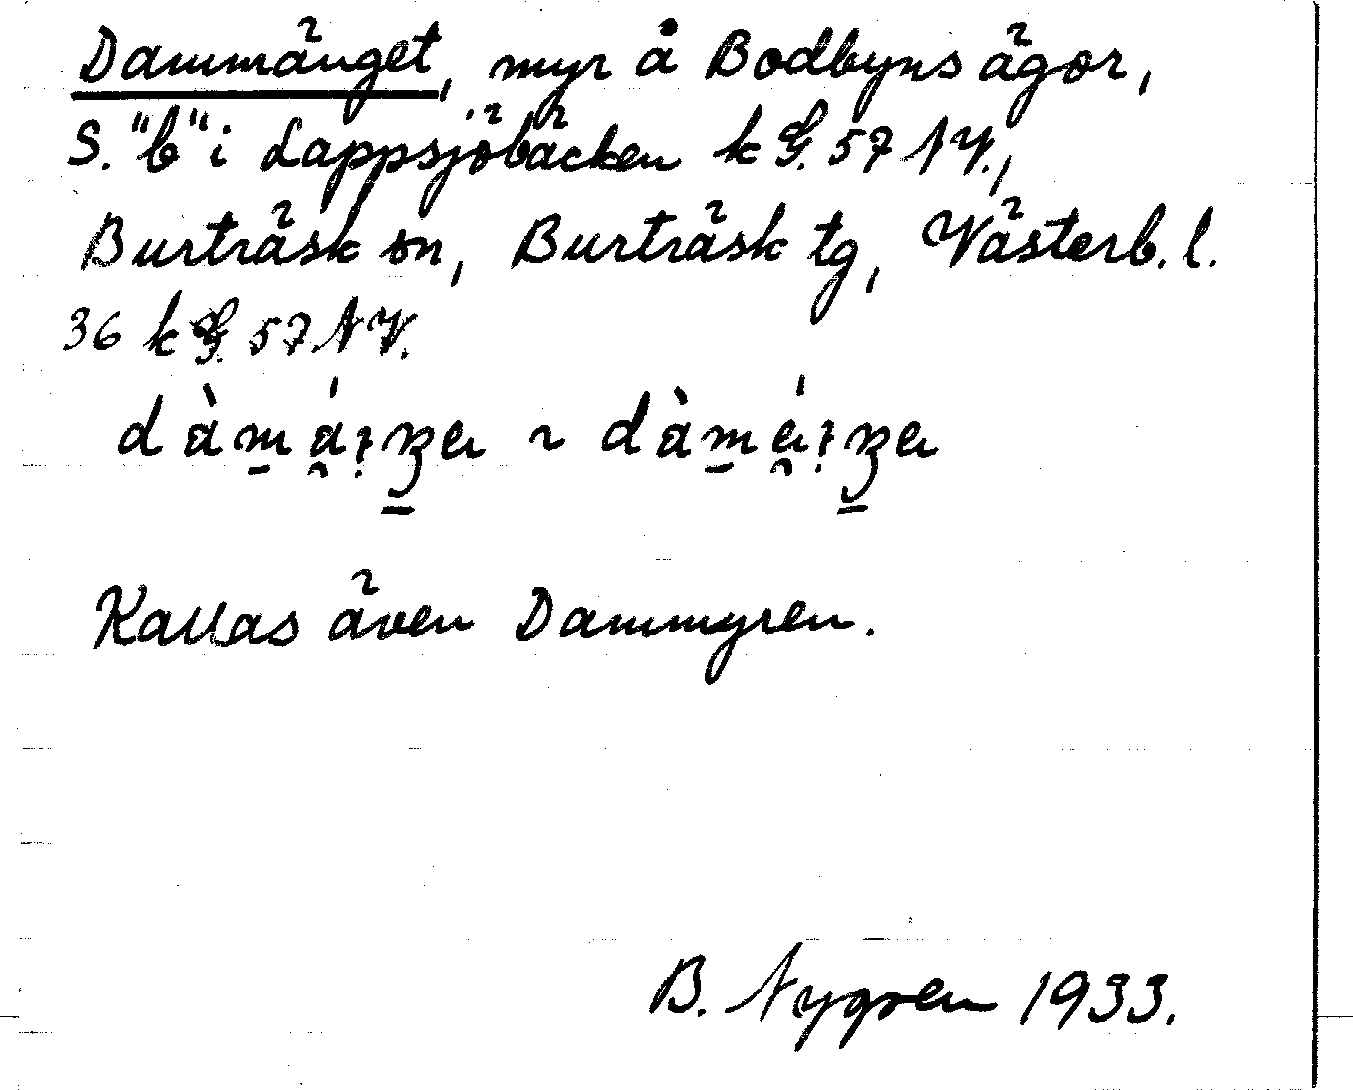 Dammänget, myr å Bodbyns ägor,
S. "b" i Lappsjöbäcken k G. 57 NV.,
Burträsk sn, Burträsk tg, Västerb. l.
36 k G. 57 NV.
Kallas även Dammyren.
B. Nygren 1933.